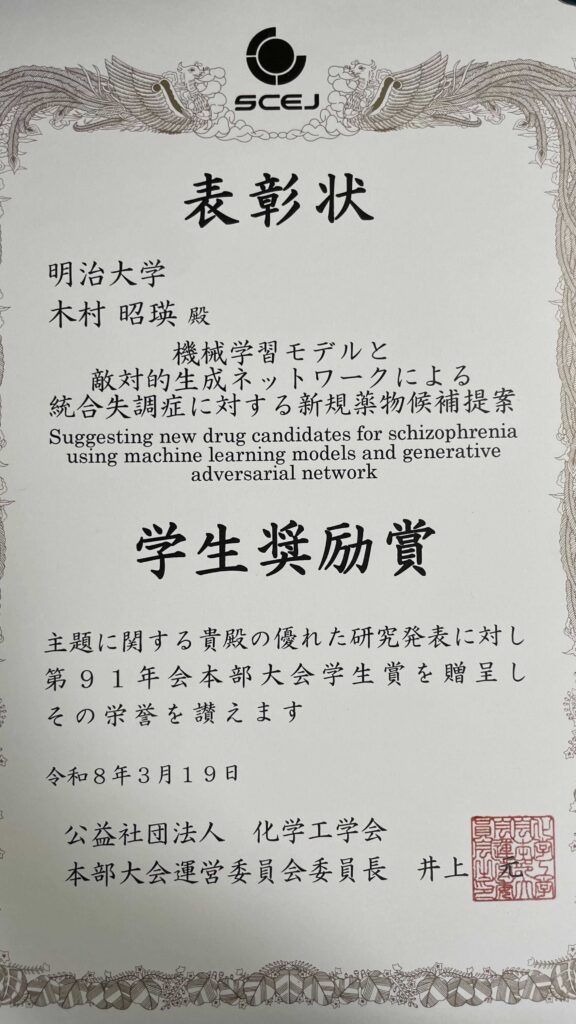 SCEJ
表彰状
明治大学
木村 昭瑛 殿
機械学習モデルと
敵対的生成ネットワークによる
統合失調症に対する新規薬物候補提案
Suggesting new drug candidates for schizophrenia
using machine learning models and generative
adversarial network
学生奨励賞
主題に関する貴殿の優れた研究発表に対し
第９１年会本部大会学生賞を贈呈し
その栄誉を讃えます
令和８年３月１９日
公益社団法人　化学工学会
本部大会運営委員会委員長　井上　元